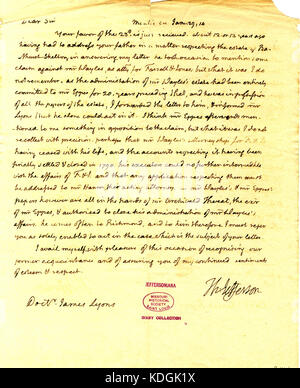 Dear Sir
Your favor of the 23d is just recieved. about 12 or 13 years ago
having had to address your father on a matter respecting the estate of Ba-
thurst Skelton, in answering my letter he took occasion to mention some
claim against mr Wayles, as ally for Farrell & Jones. but what it was I do
not remember. as the administration of mr Wayles's estate had been entirely
committed to mr Eppes for 20. years preceding that, and he was in possession
of all the papers of the estate, I forwarded the letter to him, & informed mr
Lyons that he alone could act in it. I think mr Eppes afterwards men-
tioned to me something in opposition to the claim, but what it was I do not
recollect with precision.
having ceased with his life, and the accounts respecting it having been
finally settled & closed in 1790. his executors could no further intermeddle
with the affairs of F. & J. and that any application respecting them must
be addressed to mr Hanson their acting attorney.
papers however are all in the hands of mr Archibald Thweat, the exr
of mr Eppes, & authorised to close his administration of mr Wayles's
affairs. he comes often to Richmond, and to him therefore I must refer
you as solely enabled to act in the case which is the subject of your letter
I avail myself with pleasure of this occasion of recognising our
former acquaintance and of assuring you of my continued sentiments
of esteem & respect.
Th: Jefferson
Doctr. James Lyons
JEFFERSONIANA
MISSOURI
HISTORICAL
SOCIETY
SAINT LOUIS
BIXBY COLLECTION
alamy
Image ID: KDGK1X